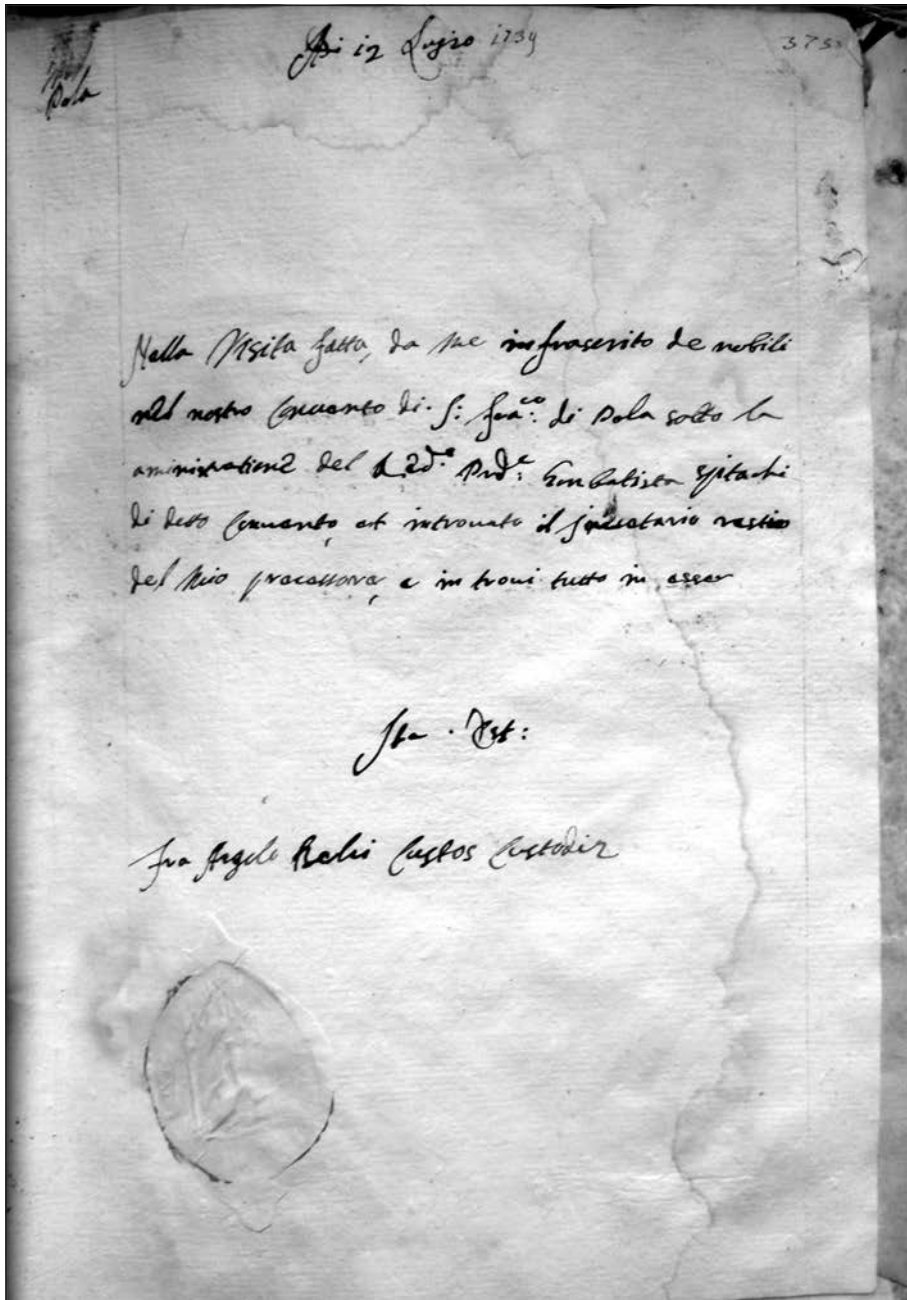 Pola
Adi 12 Luglio 1739
Nella Visita fatta, da me infrascrito de nobili
nel nostro Convento di S: Fran:co di Pola sotto la
aministratione del R:do Pad:e Gio Batista
di detto Convento, et introvato il
del mio precessore, e in trovi tutto in esser
Ita Est:
Fra Angelo Custos Custodiæ